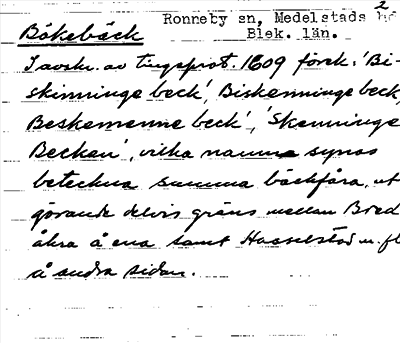 2
Ronneby sn, Medelstads hd
Blek. län.
Bökebäck
I avskr. av tingsprot. 1609 förek. 'Bi-
skinninge beck', Biskenninge beck,
Beskemenne beck', 'Skenninge
Becken', vilka namn synas
beteckna samma bäckfåra, ut
görande delvis gräns mellan Bred
åkra å ena samt Hasselstad m. fl
å andra sidan.